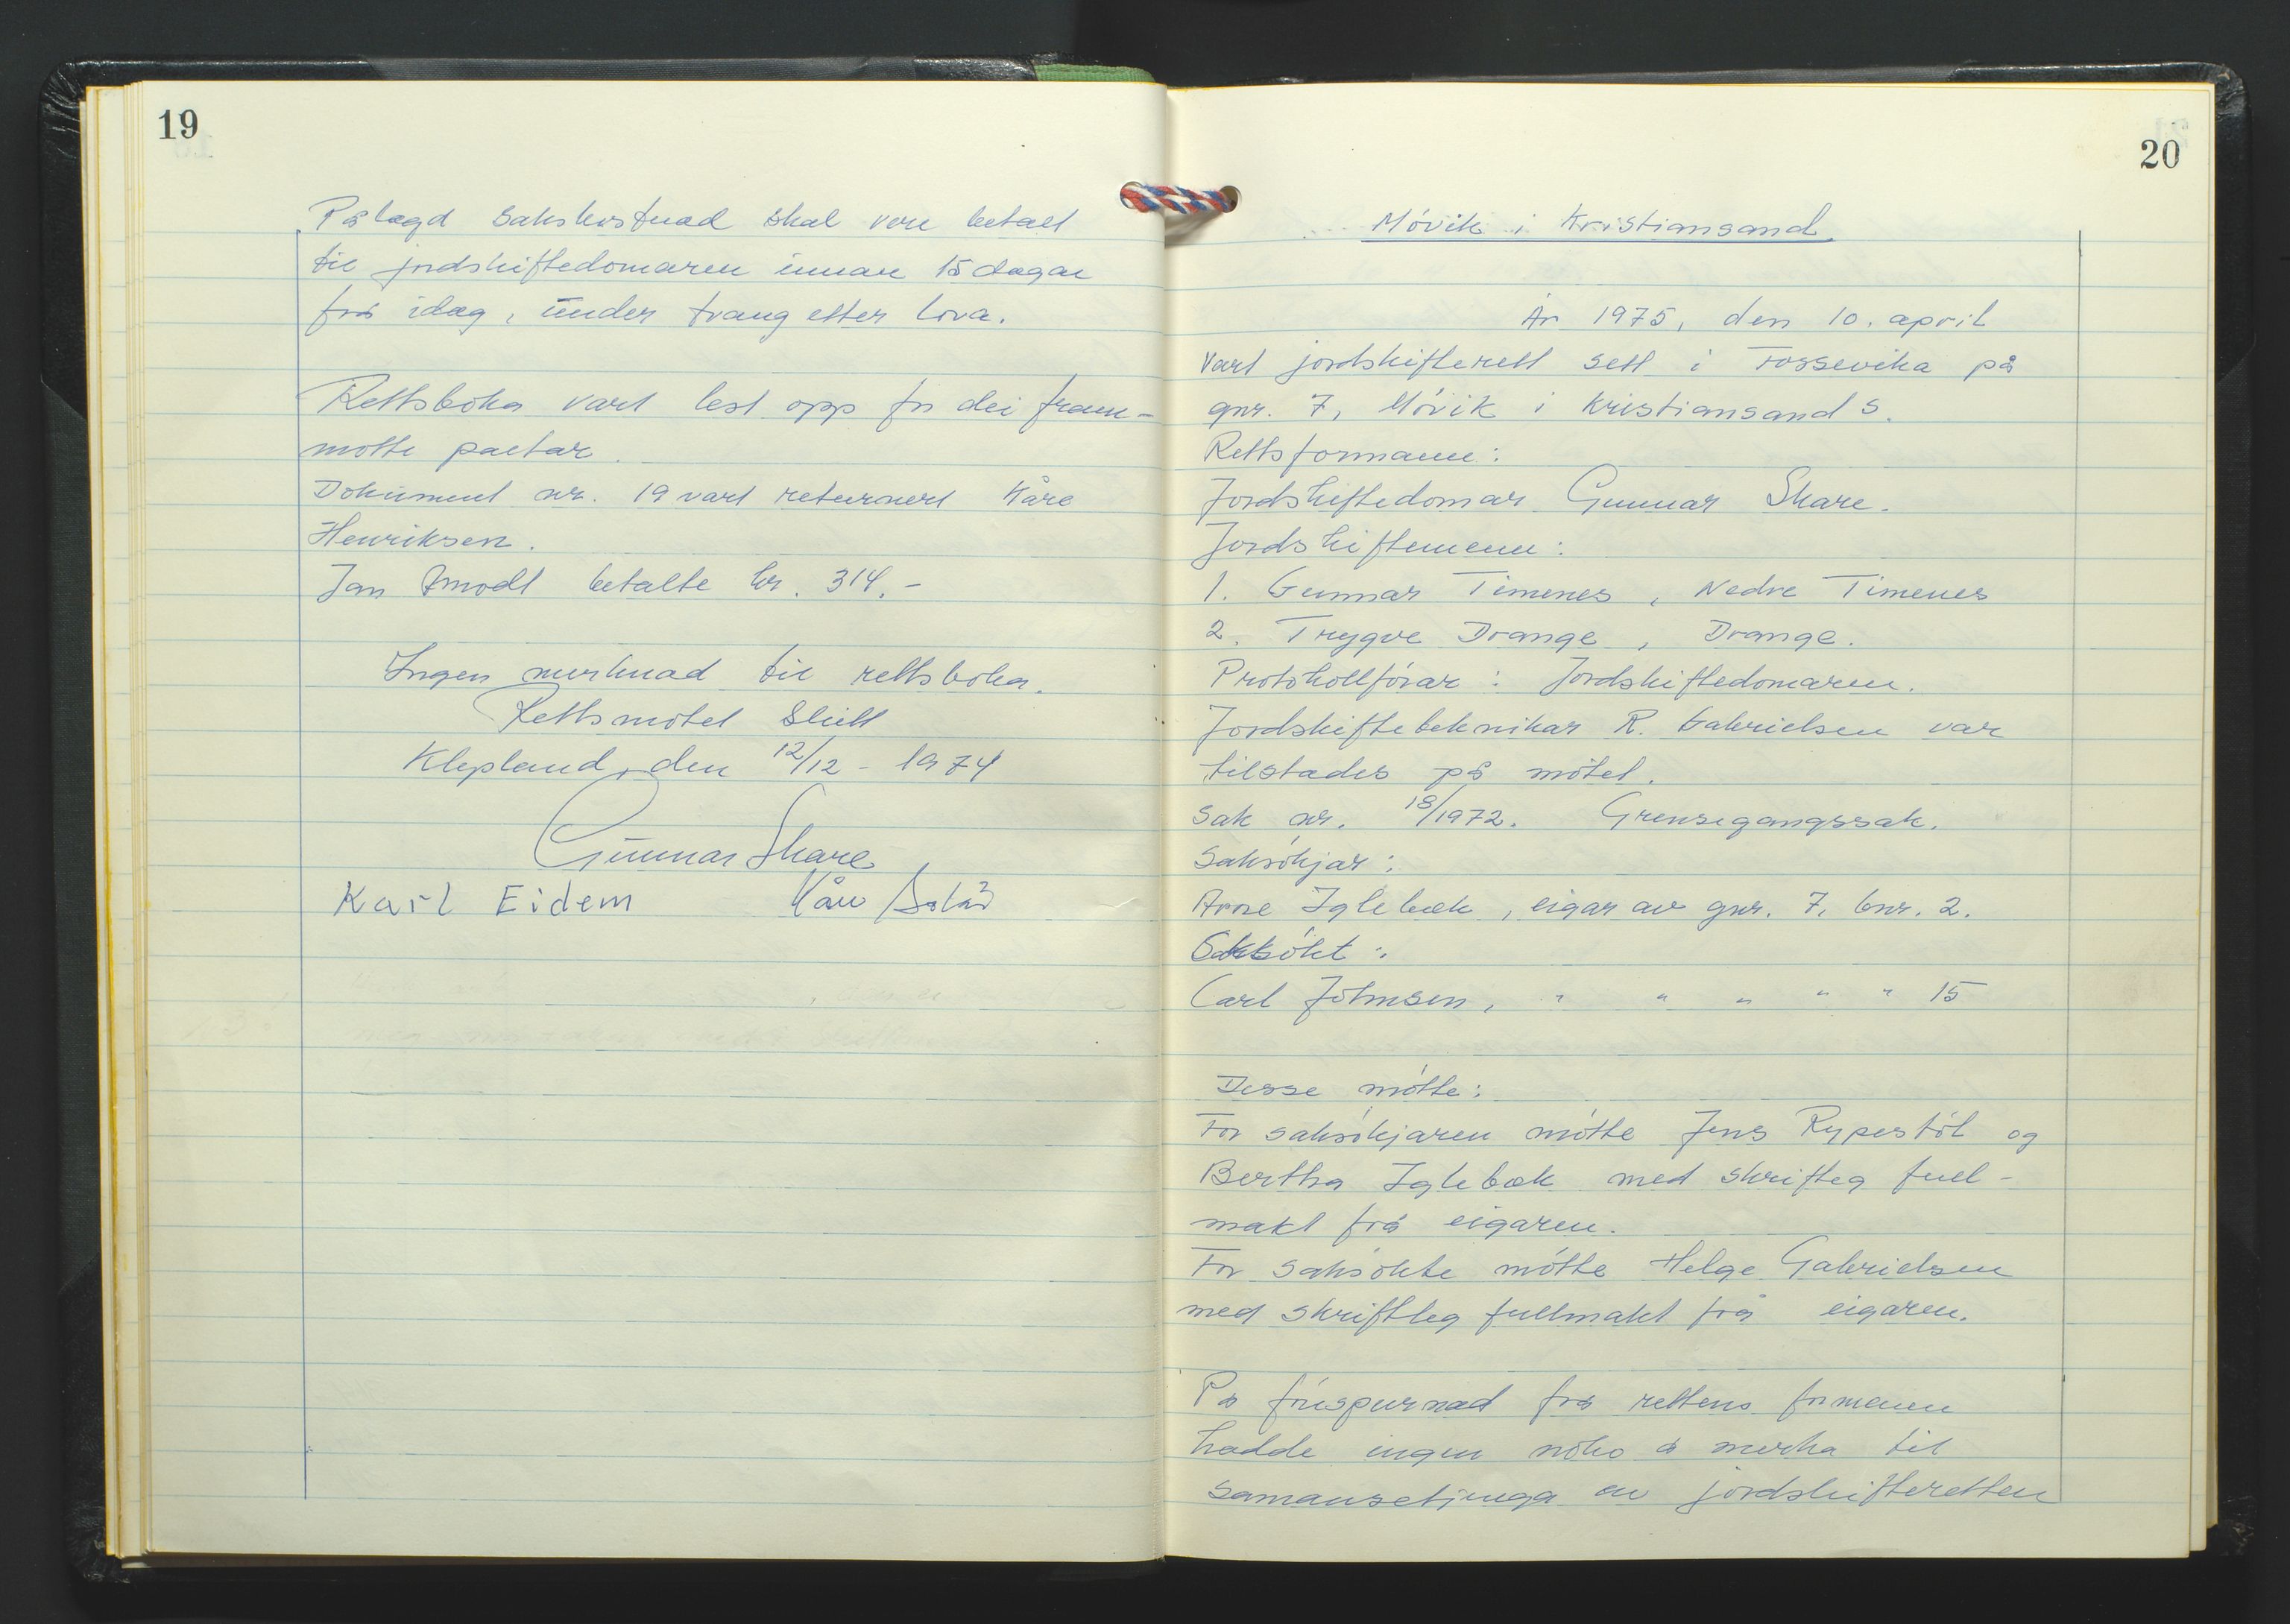 19
Pålagd sakskostnad skal vere betalt
til jordskiftedomaren innan 15 dagar
frå idag, under tvang etter lova.
Rettsboka vart lest opp for dei fram-
møtte partar.
Dokument nr. 19 vart returnert Kåre
Henriksen.
Jan Omodt betalte kr. 314.-
Ingen merknad til rettsboka.
Rettsmøtet slutt
Klepland, den 12/12 - 1974
Gunnar Skare
Karl Eidem Kåre
20
Móvik i Kristiansand.
År 1975, den 10. april
vart jordskifterett sett i Fossevika på
gnr. 7, Móvik i Kristiansand S.
Rettsformann:
Jordskiftedomar Gunnar Skare.
Jordskiftemenn:
1. Gunnar Timenes, Nedre Timenes
2. Trygve Drange, Drange.
Protokollfórar: Jordskiftedomaren.
Jordskifteteknikar R. Gabrielsen var
tilstades på mótet.
Sak nr. 18/1972. Grensegangssak.
Saksókjar:
Arne Iglebæk, eigar av gnr. 7, bnr. 2.
Saksókt:
Carl Johnsen, " " " " " 15
Desse mótte:
For saksókjaren mótte Jens Rypestól og
Bertha Iglebæk med skrifteg full-
makt frå eigaren.
For saksókte mótte Helge Gabrielsen
med skriftleg fullmakt frå eigaren.
På fórespurnad frå rettens formann
hadde ingen noko å merka til
samansetjinga av jordskifteretten